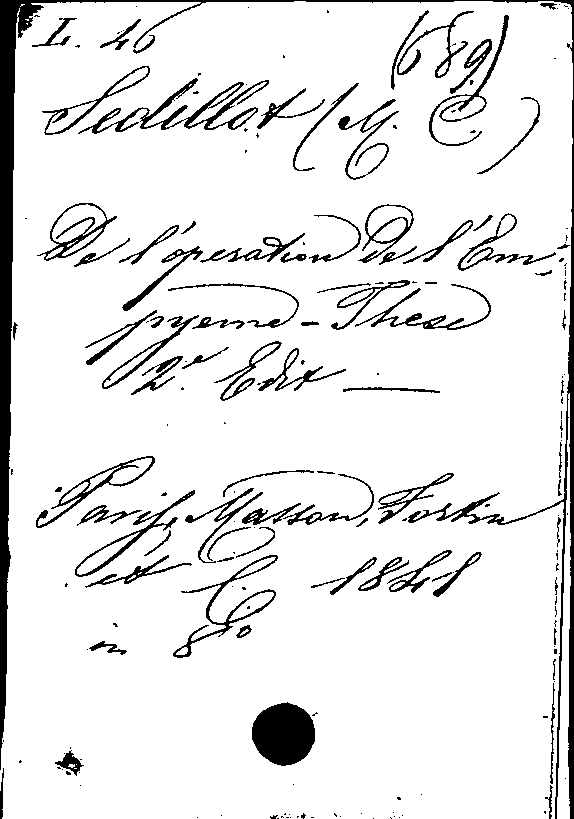 L. 46 (689)
Sedillot (M. C.)
De l'óperation de l'Em-
pyeme - These
2e Edit —
Paris, Masson, Fortin
et C. 1841
in 8o